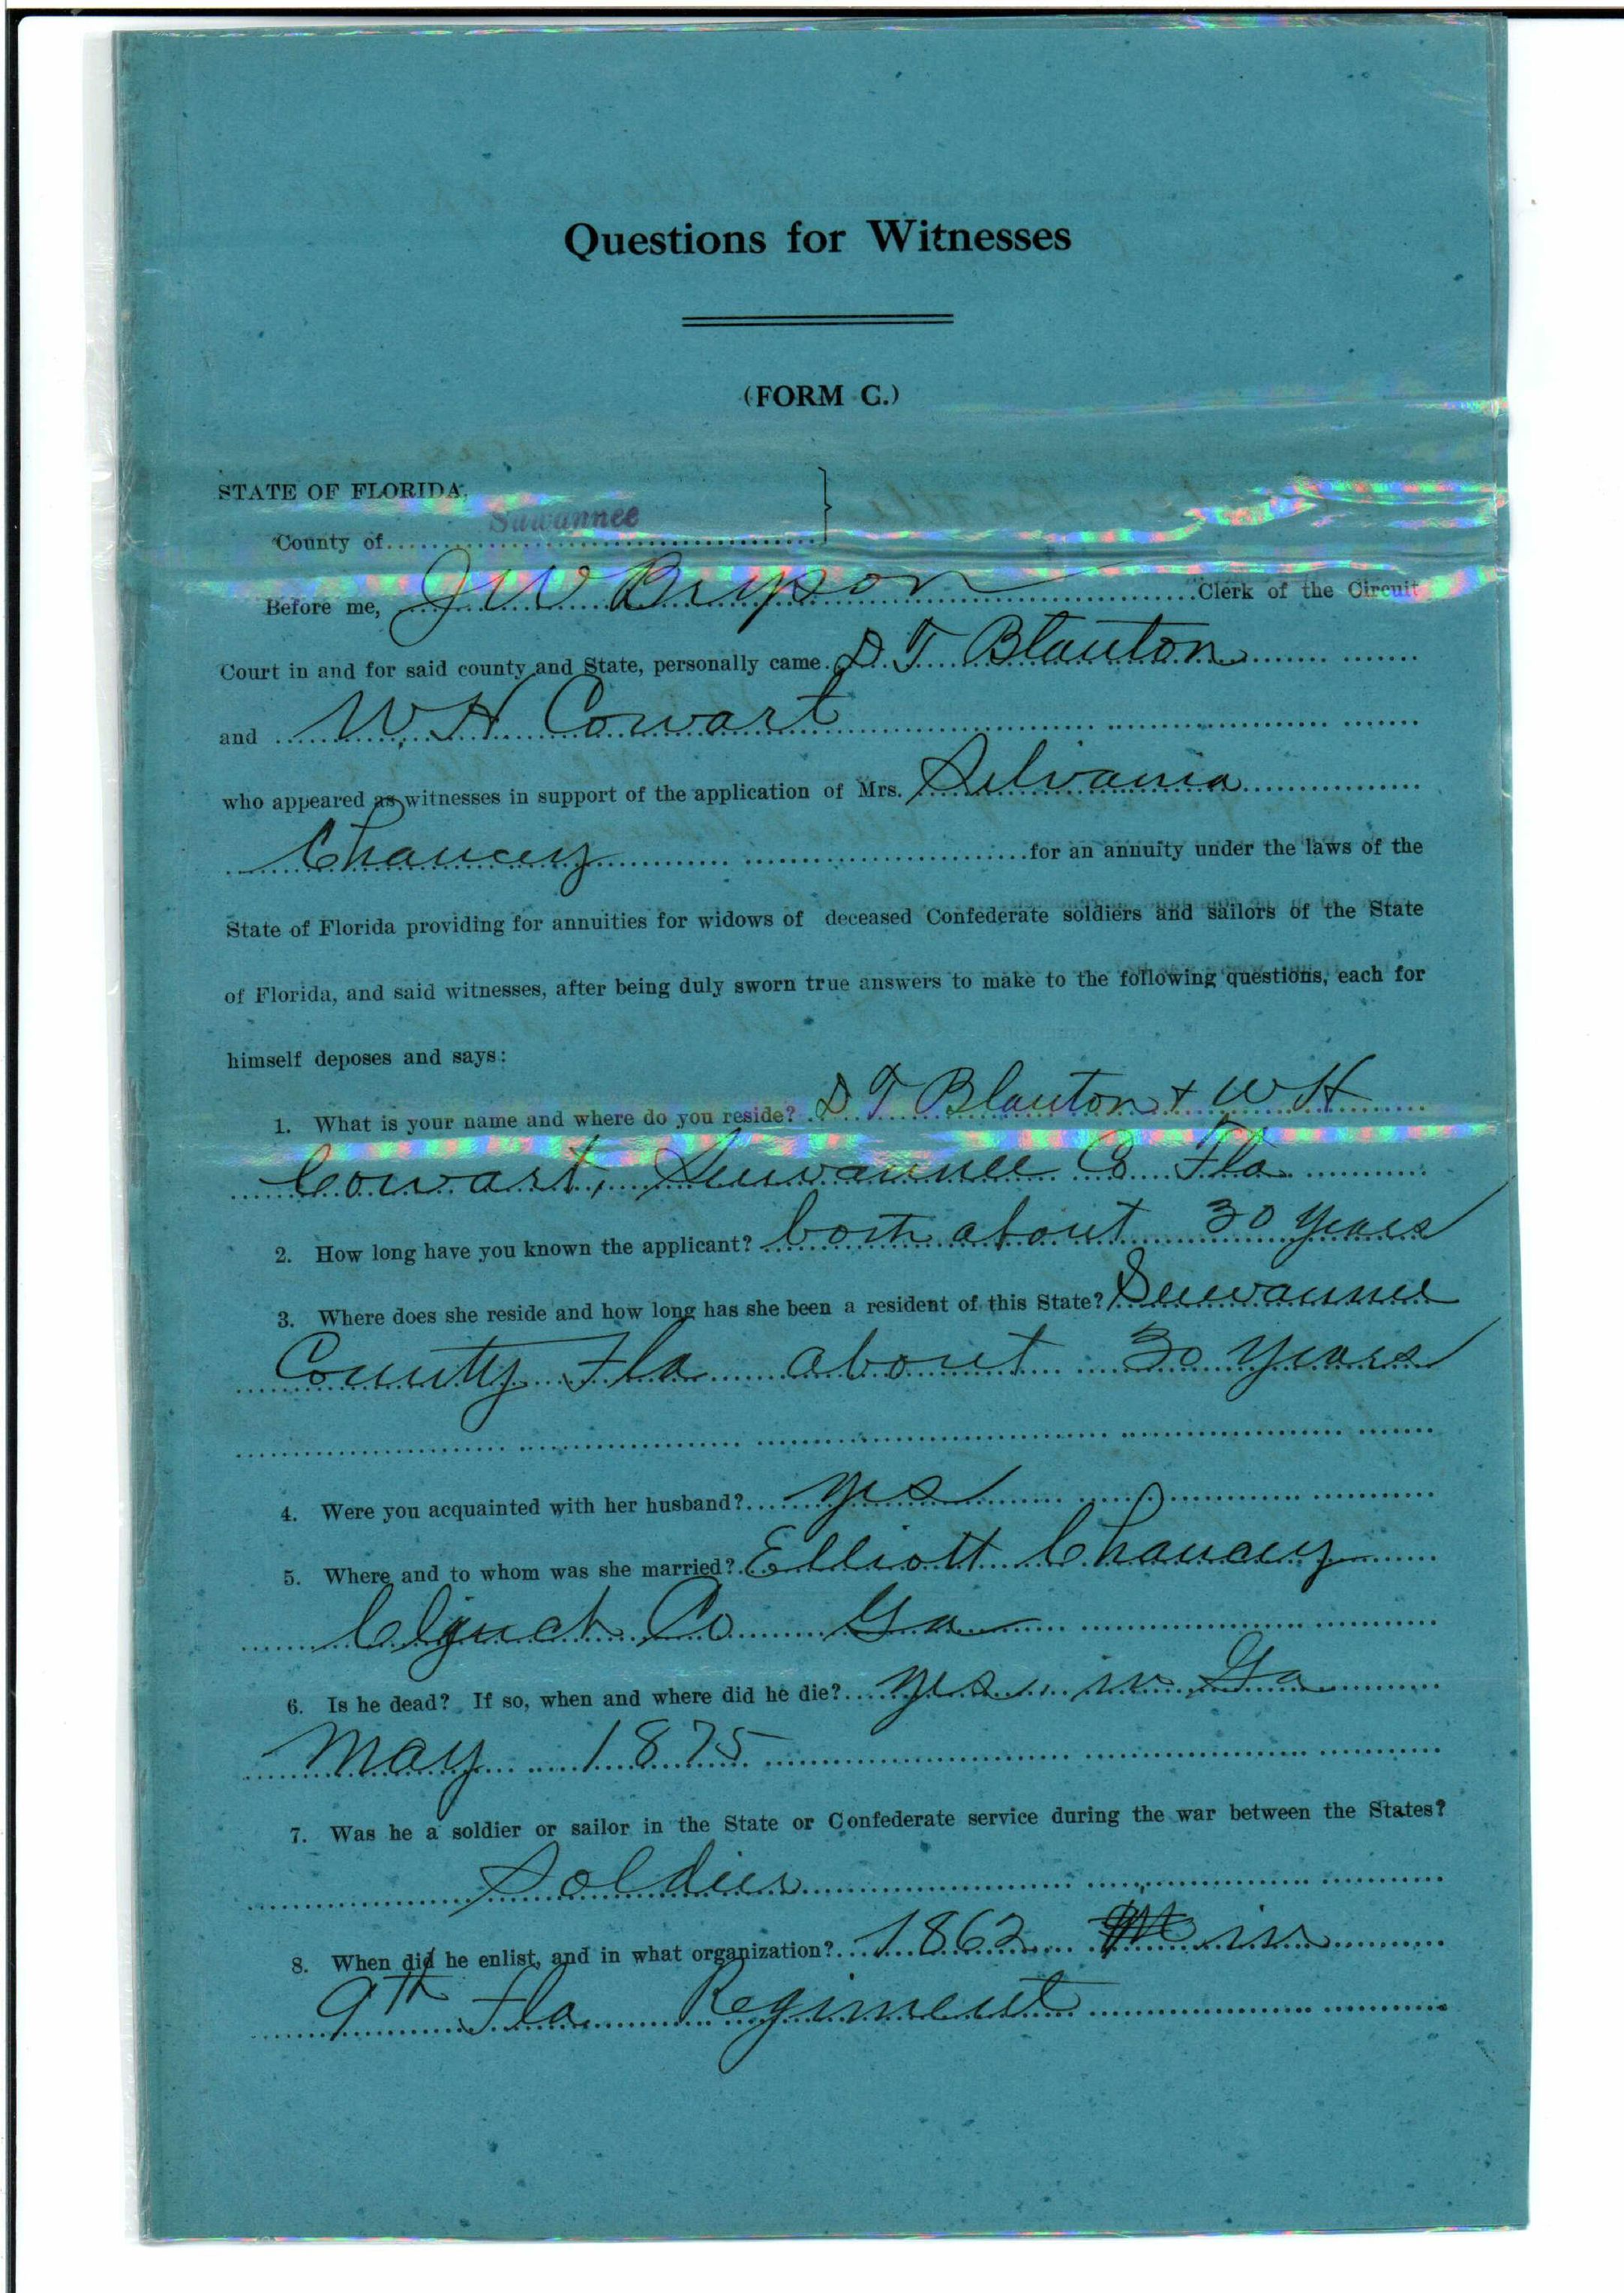 Questions for Witnesses
(FORM C.)
STATE OF FLORIDA,
County of Suwannee
Before me, J W Bryson Clerk of the Circuit
Court in and for said county and State, personally came D. T. Blanton
and W. H. Cowart
who appeared as witnesses in support of the application of Mrs. Silvania
Chancey for an annuity under the laws of the
State of Florida providing for annuities for widows of deceased Confederate soldiers and sailors of the State
of Florida, and said witnesses, after being duly sworn true answers to make to the following questions, each for
himself deposes and says:
1. What is your name and where do you reside? D T Blanton + W H
Cowart, Suwannee Co Fla
2. How long have you known the applicant? both about 30 years
3. Where does she reside and how long has she been a resident of this State? Suwannee
County Fla about 30 years
4. Were you acquainted with her husband? yes
5. Where and to whom was she married? Elliott Chancey
Clynch Co Ga
6. Is he dead? If so, when and where did he die? yes, in Ga
May 1875
7. Was he a soldier or sailor in the State or Confederate service during the war between the States?
Soldier
8. When did he enlist, and in what organization? 1862 in
9th Fla Regiment